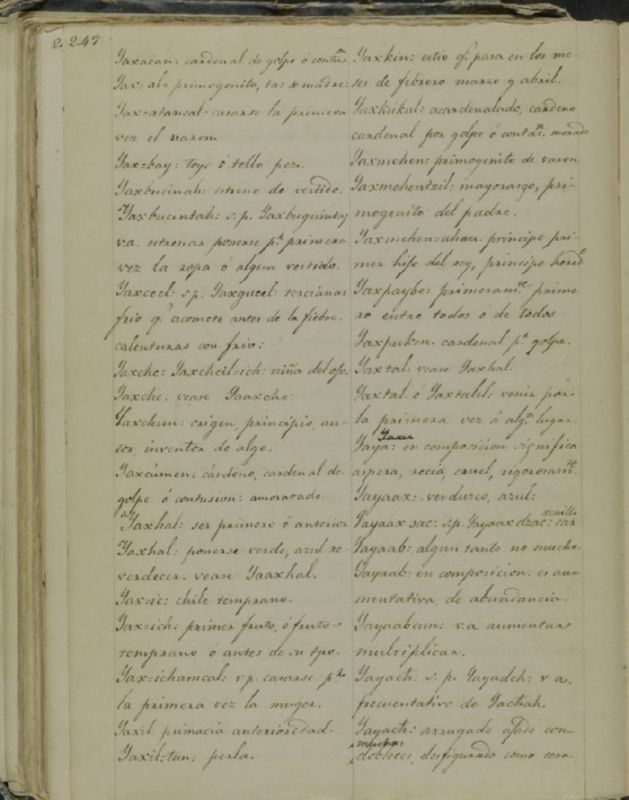 247
Yaxacan: cardenal de golpe ó contusn.
Yax-al= primogenito, ta: de madre:
Yax-atancal- casarse la primera
vez el varon
Yax-bay: toyo ó tollo pez.
Yaxbucinah: estreno de vestido.
Yaxbucintah: s.p. Yaxbuquintej
v.a. estrenar ponerse pa. primera
vez la ropa ó algun vestido.
Yaxceel: s.p. Yaxqueel: tercianas
frio q' acomete antes de la fiebre.
calenturas con frio:
Yaxche: Yaxcheil-ich: niña del ojo.
Yaxche: vease Yaaxche:
Yaxchun: origen, principio, au-
tor, inventor de algo.
Yaxcúmen: cárdeno, cardenal de
golpe ó contusion: amoratado.
Yaxhal: ser primero ó anterior
Yaxhal: ponerse verde, azul re-
verdecer. vease Yaaxhal.
Yax-ic: chile temprano.
Yax-ich: primer fruto, ó fruto-
temprano o antes de su tpo.
Yax-ichamcal: v.p. casarse pr.
la primera vez la muger.
Yaxil primacia anterioridad.
Yaxil-tun: perla.
Yaxkin: estio q' para en los me-
ses de febrero marzo y abril.
Yaxkukul: acardenalado, cardeno
cardenal por golpe ó contun. morado
Yaxmehen: primogenito de varon
Yaxmehentzil: mayorazgo, pri-
mogenito del padre.
Yaxmehen-ahau. principe pri-
mer hijo del rey, principe hered.o
Yaxpaybe: primeramte. prime
ro entre todos ó de todos
Yaxpukon. cardenal pr. golpe.
Yaxtal: vease Yaxhal.
Yaxtal ó Yaxtalil: venir por-
la primera vez á algn. lugar.
Yaya: en composicion significa
aspera, recia, cruel, rigorosamte.
Yayaax: verdusco, azul:
Yayaax sac: s.p. Yayaax dzac:
Yayaab: algun tanto no mucho.
Yayaab: en composicion. es au-
mentativa, de abundancia.
Yayaabcun: v.a aumentar
multiplicar.
Yayach: s.p. Yayadch: v a.
frecuentativo de Yachah.
Yayach: arrugado ajado con-
muchos
dobleces, desfigurado como cosa